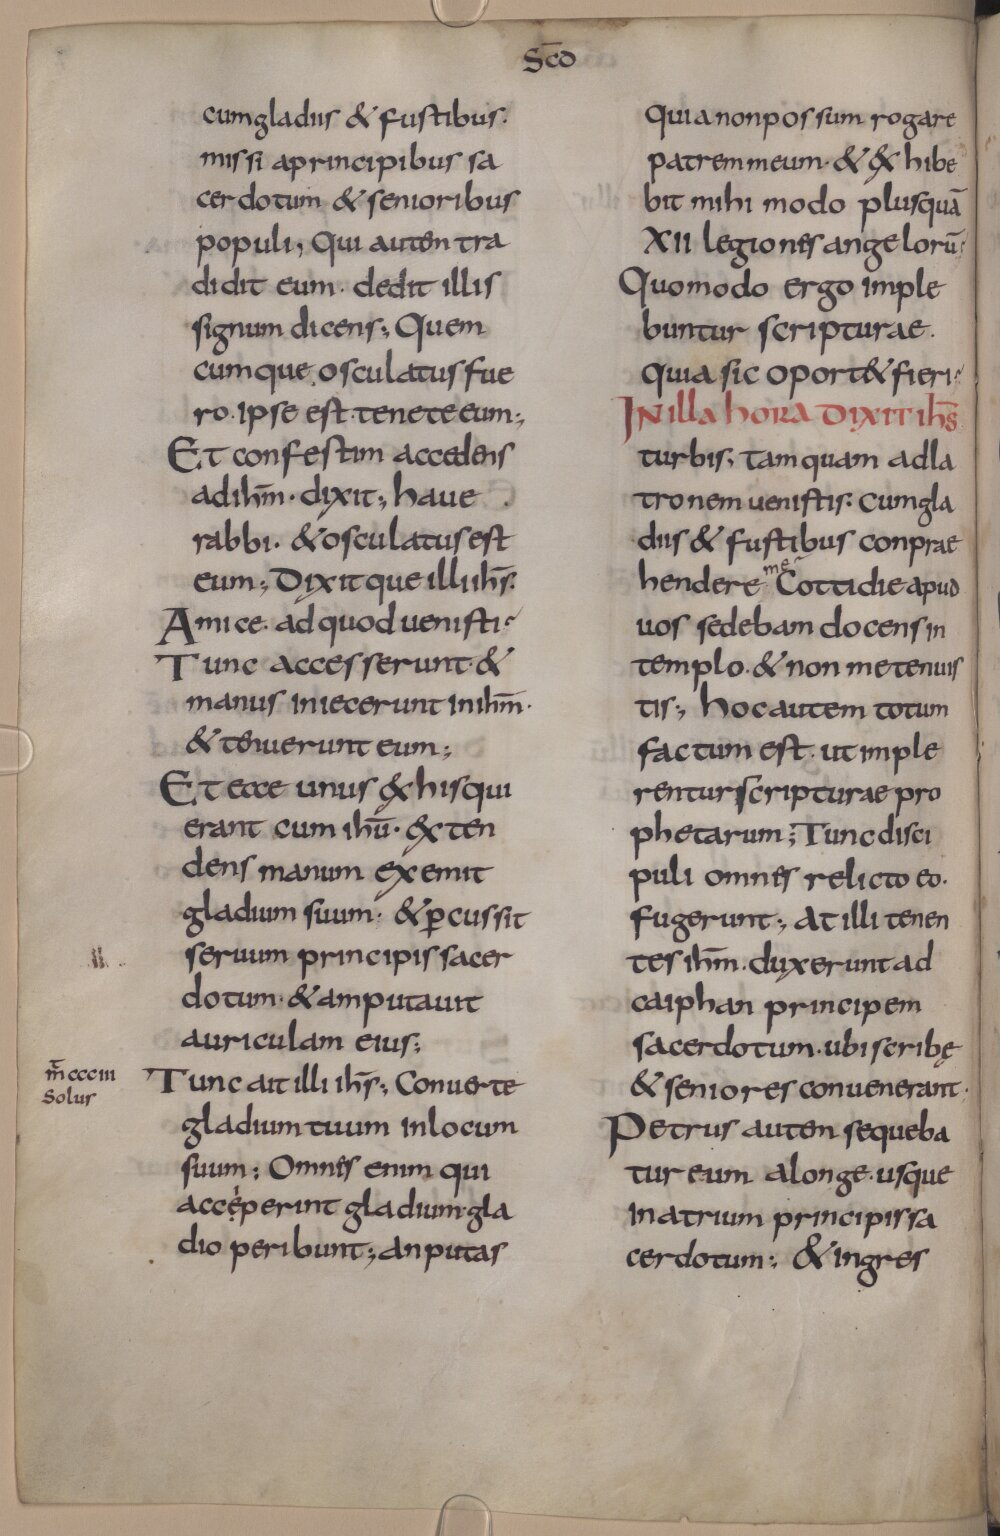 Scđo
cum gladiis & fustibus.
missi a principibus sa
cerdotum & senioribus
populi; Qui autem tra
didit eum. dedit illis
signum dicens; Quem
cumque osculatus fue
ro. ipse est. tenete eum;
Et confestim accedens
ad ihm̄. dixit; haue
rabbi. & osculatus est
eum; Dixitque illi ihs̄.
Amice. ad quod uenisti
Tunc accesserunt. &
manus iniecerunt in ihm̄.
& tenuerunt eum;
Et ecce unus ex his qui
erant cum ihū. exten
dens manum exemit
gladium suum. & ꝑcussit
seruum principis sacer
dotum. & amputauit
auriculam eius;
m̄ ccciii
Solus
Tunc ait illi ihs̄; Conuerte
gladium tuum in locum
suum; Omnes enim qui
acceperint gladium. gla
dio peribunt; an putas
Quia non possum rogare
patrem meum. & exhibe
bit mihi modo plusquā
XII legiones angelorū
Quomodo ergo imple
buntur scripturae.
quia sic oport& fieri
IN illa hora dixit ihs̄
turbis; tamquam ad la
tronem uenistis. cum gla
diis & fustibus conprae
hendere me Cottidie apud
uos sedebam docens in
templo. & non me tenuis
tis; hoc autem totum
factum est. ut imple
rentur scripturae pro
phetarum; Tunc disci
puli omnes relicto eo.
fugerunt; at illi tenen
tes ihm̄. duxerunt ad
caiphan principem
sacerdotum. ubi scribę
& seniores conuenerant.
Petrus autem sequeba
tur eum a longe. usque
in atrium principis sa
cerdotum; & ingres